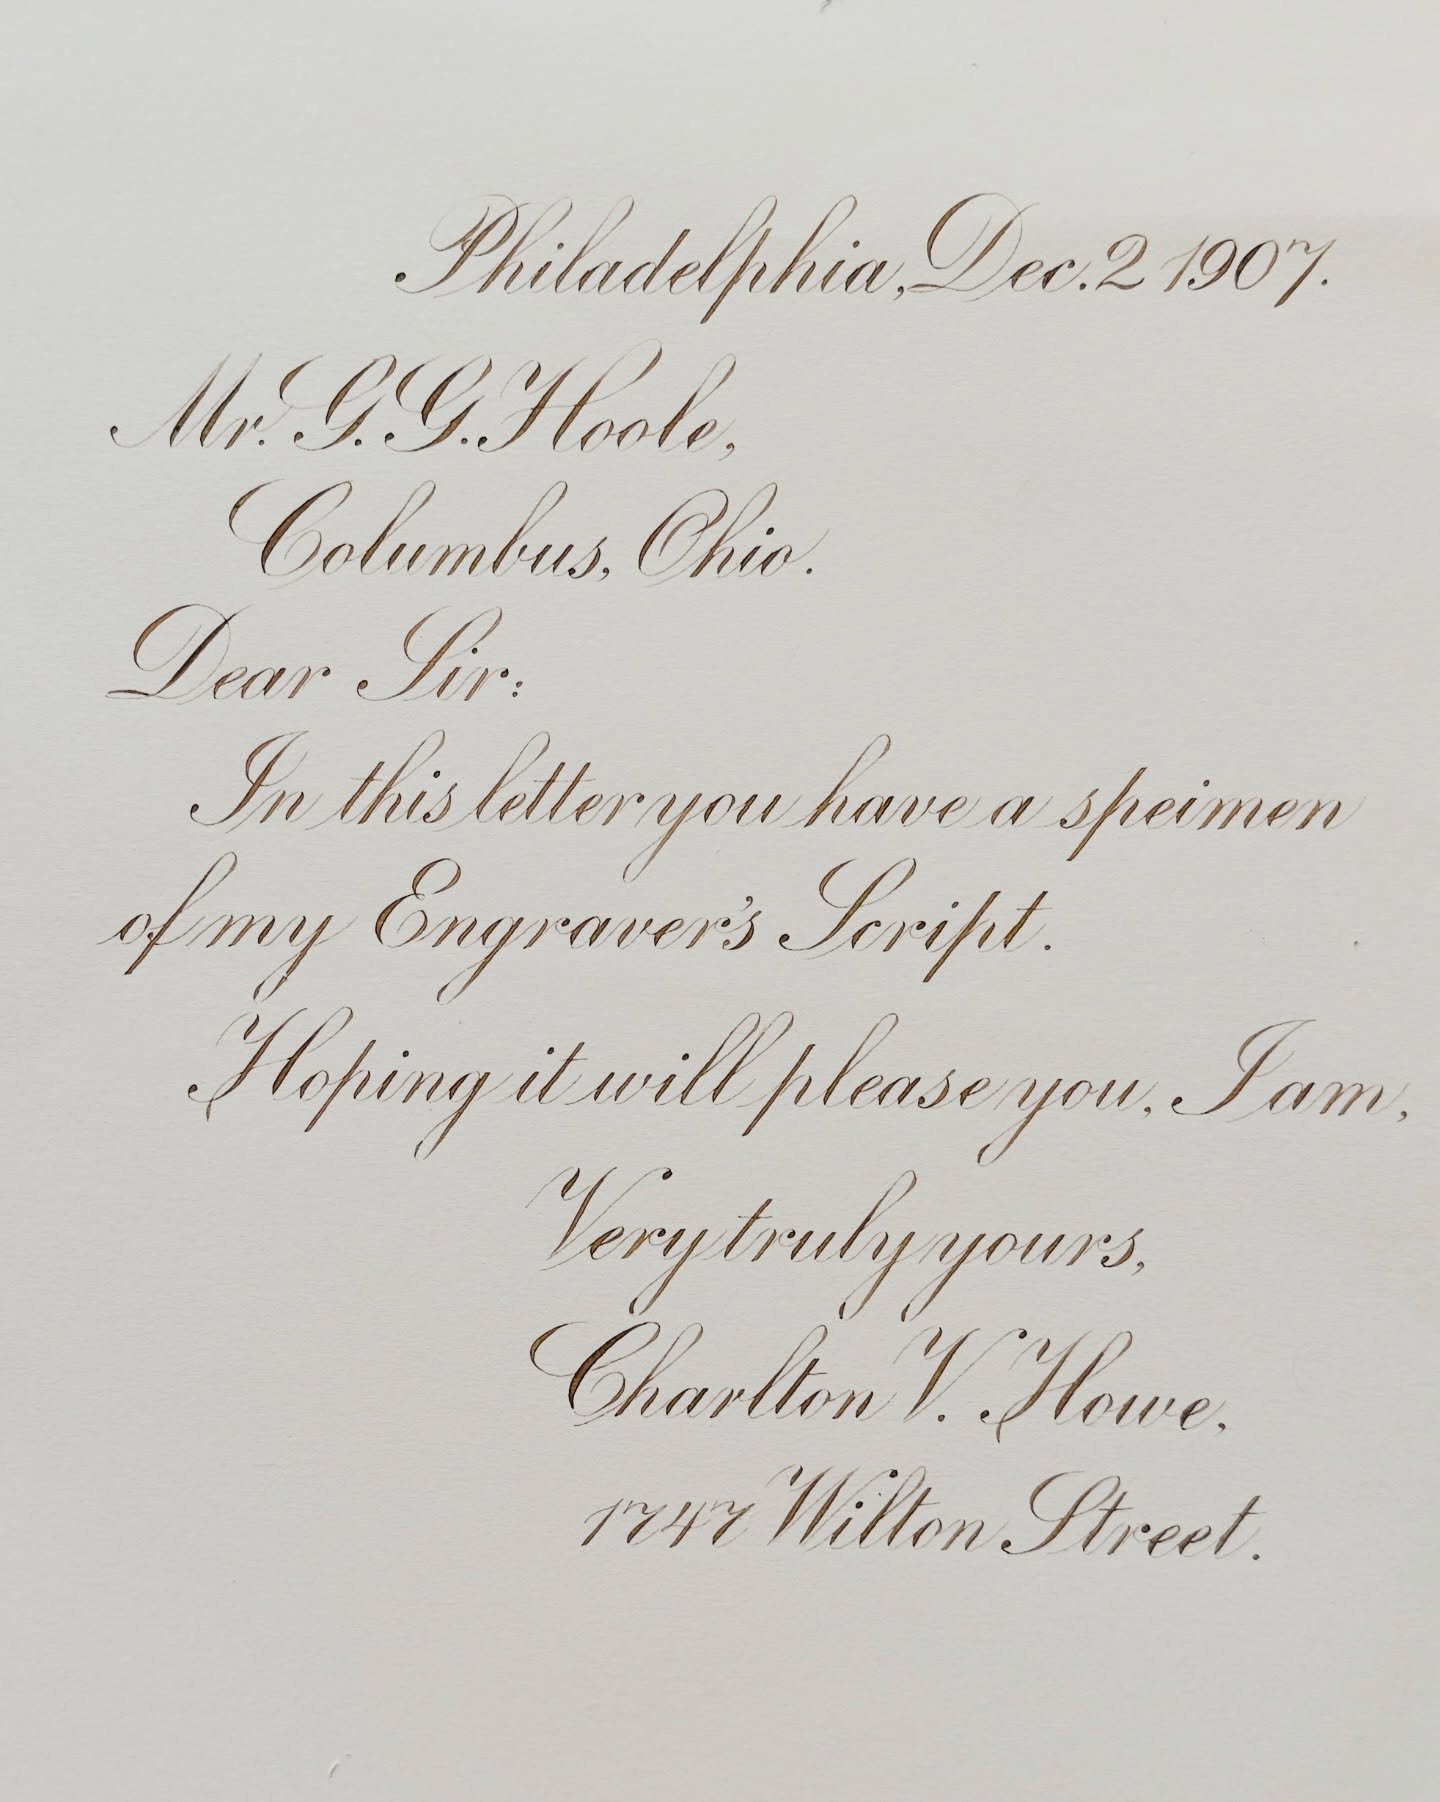 Philadelphia, Dec. 2 1907.
Mr. G. G. Hoole,
Columbus, Ohio.
Dear Sir:
In this letter you have a speimen
of my Engraver's Script.
Hoping it will please you, I am,
Very truly yours,
Charlton V. Howe,
1747 Wilton Street.